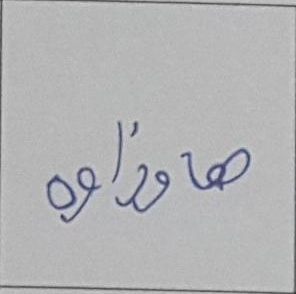 هاوزاوە